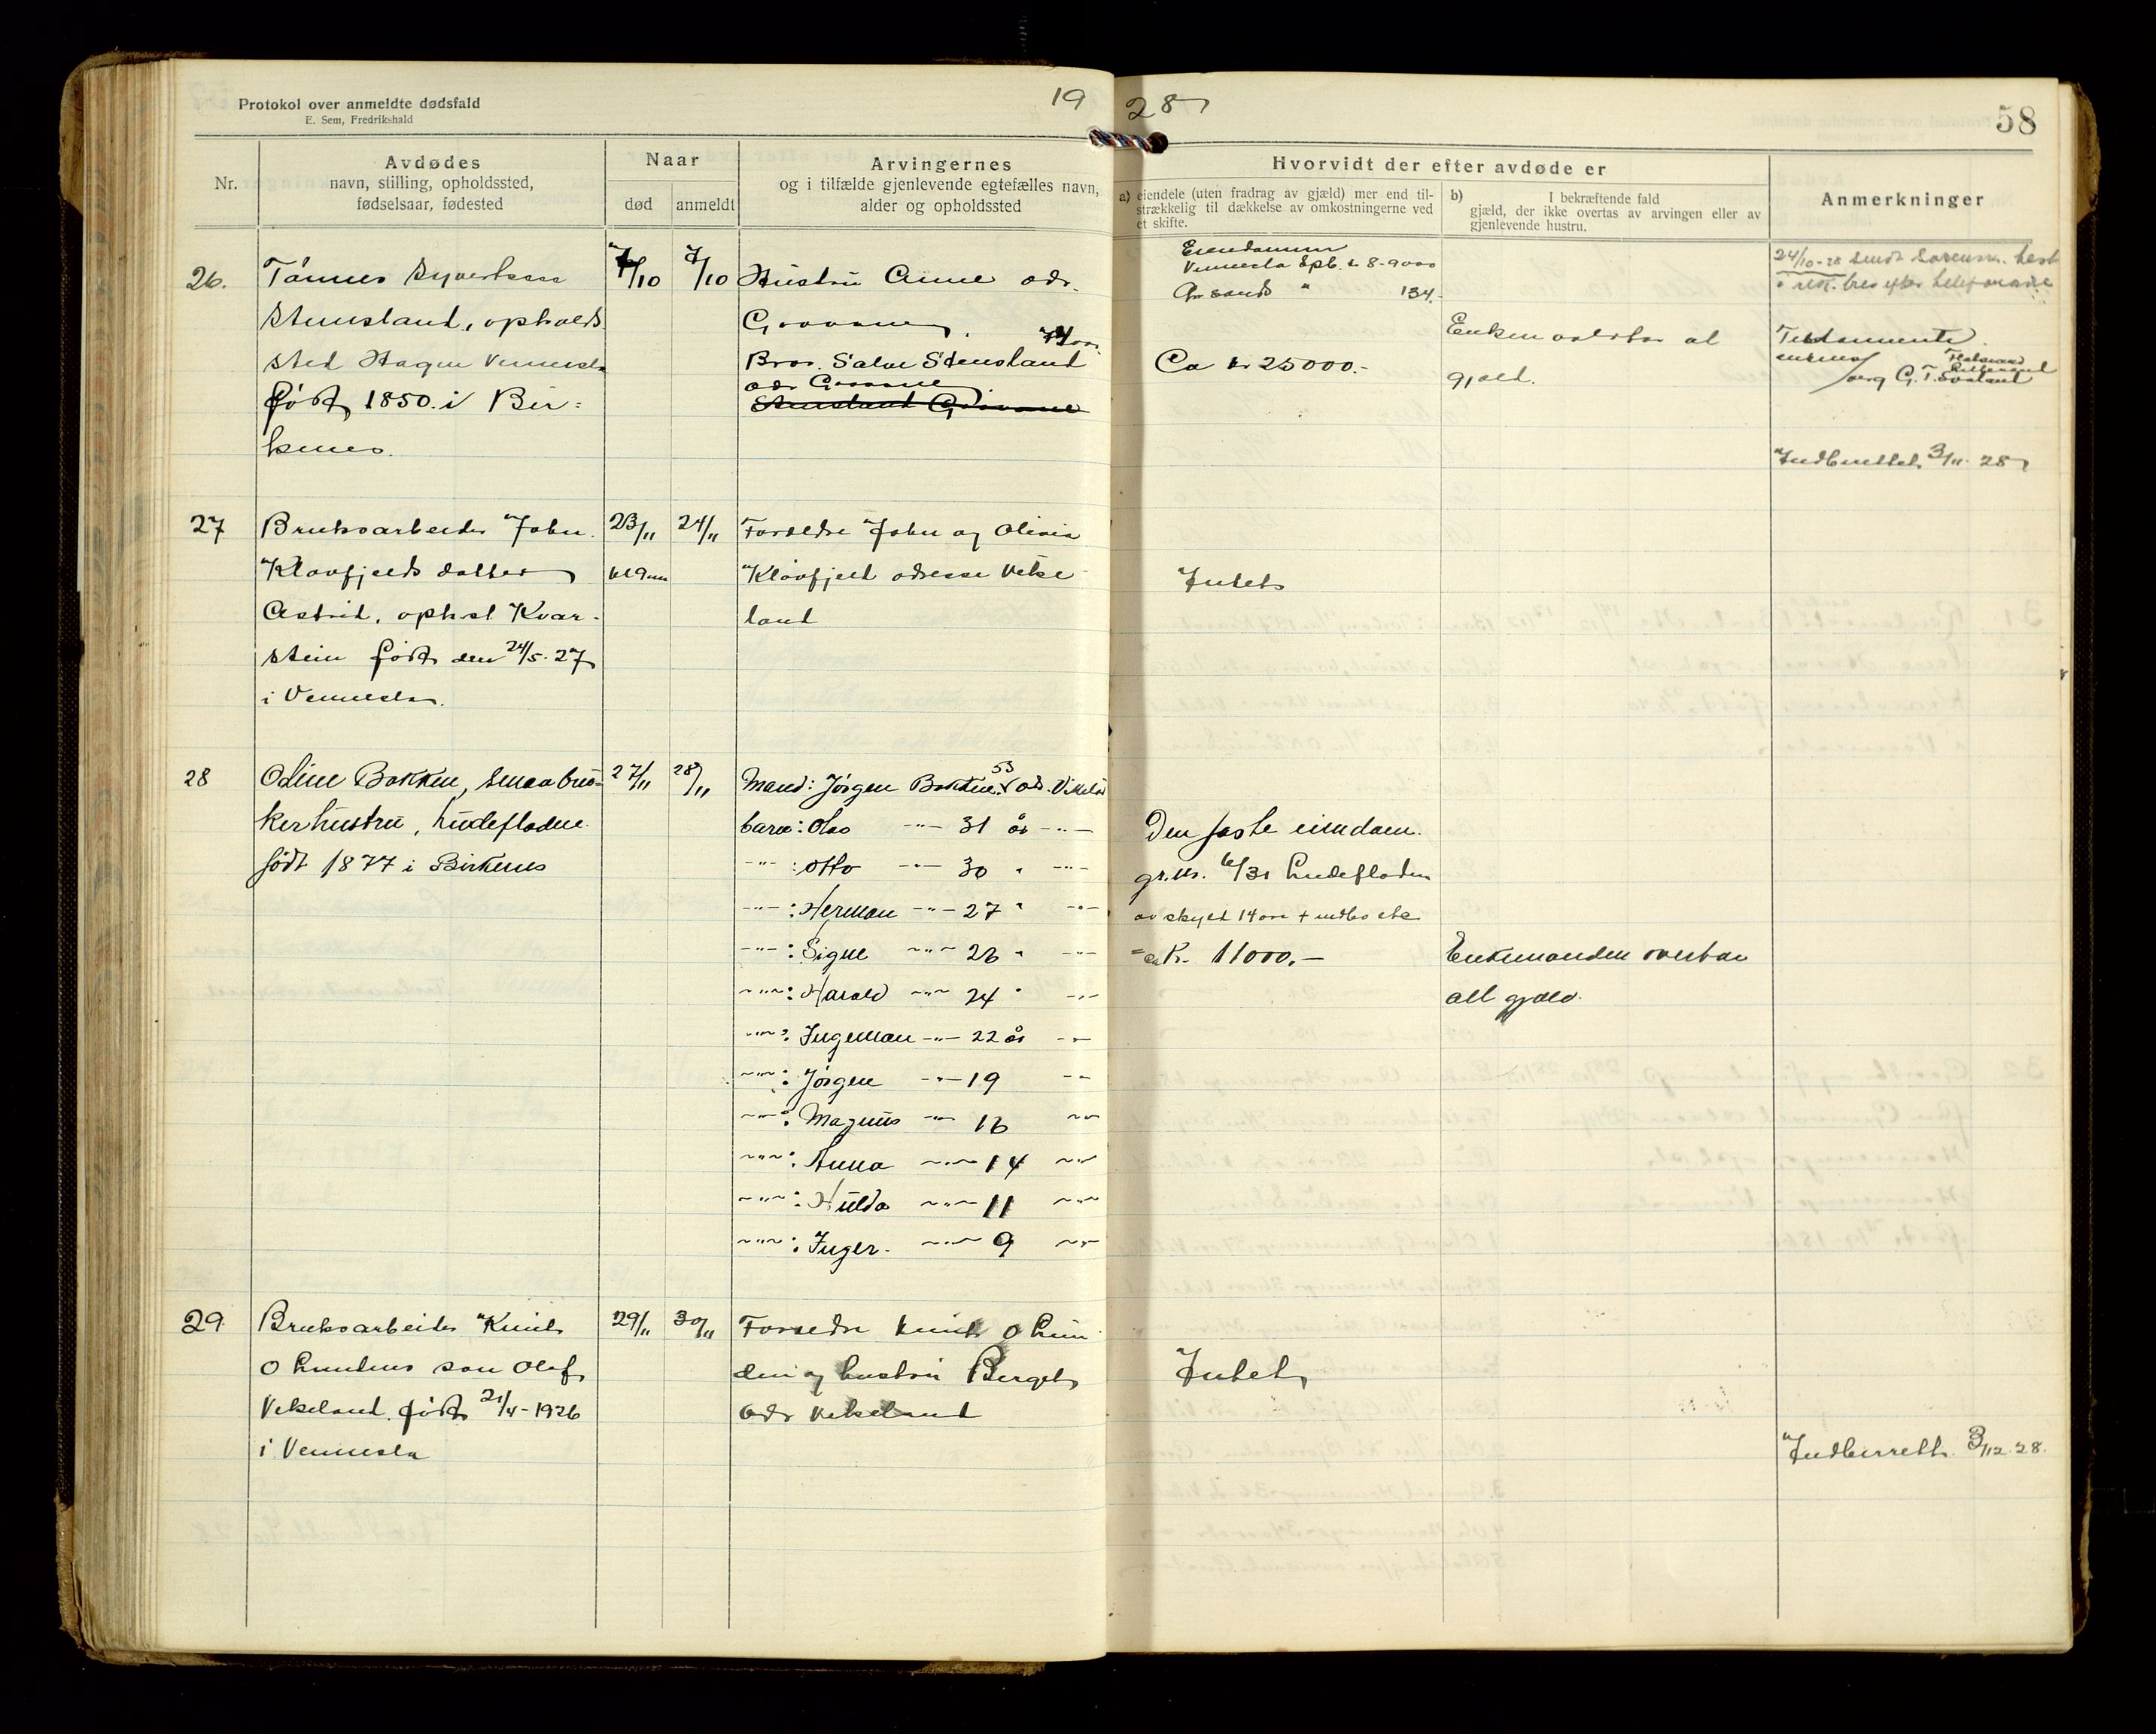 Protokol over anmeldte dødsfald
E. Sem, Fredrikshald
19 28
58
Nr.
Avdødes
navn, stilling, opholdssted,
fødselsaar, fødested
Naar
død
anmeldt
Arvingernes
og i tilfælde gjenlevende egtefælles navn,
alder og opholdssted
Hvorvidt der efter avdøde er
a) eiendele (uten fradrag av gjæld) mer end til-
strækkelig til dækkelse av omkostningerne ved
et skifte.
b) I bekræftende fald
gjæld, der ikke overtas av arvingen eller av
gjenlevende hustru.
Anmerkninger
26.
Tønnes Syvertsen
Stensland, opholds
sted Hagen Vennesla
født 1850 i Bir=
kenes.
7/10
7/10
Hustru Anne adr.
Grovane.
Bror. Salve Stensland
adr Grovane
Stensland Grovane
Eiendommen
Vennesla Spb. kr 8-9000
Chrsands " 134.-
Ca kr 25000.-
Enken overtar al
gjæld.
24/10-28 sendt
Testamente
enkens
verg G. T.
Indberettet 3/11-28
27
Bruksarbeider John
Kløvfjelds datter
Astrid, oph.st Kvar-
stein født den 24/5-27
i Vennesla.
23/11
24/11
Forældre John og Olivia
Kløvfjeld adresse Vikse
land
Intet
28
Oline Bakken, smaabru-
kerhustru, hundefladne
født 1877 i Birkenes
27/11
28/11
Mand: Jørgen Bakken 53 adr.
barn: Olav -"- 31 år -"-
-"- : Otto -"- 30 " -"-
-"- : Herman -"- 27 " -"-
-"- : Signe -"- 26 " -"-
-"- : Harald -"- 24 " -"-
-"- : Ingeman -"- 22 år -"-
-"- : Jørgen -"- 19 -"-
-"- : Magnus -"- 16 -"-
-"- : Anna -"- 14 -"-
-"- : Hulda -"- 11 -"-
-"- : Inger. -"- 9 -"-
Den faste eiendom.
gr.nr. 6/31 hundefladen
av skyld 14 øre + indbo etc
= ca Kr. 11000.-
Enkemanden overtar
all gjæld.
29
Bruksarbeider Knut
O Lundens søn Olaf
Vikeland født 21/4-1926
i Vennesla
29/11
30/11
Forældre Knut O Lun
den og hustru Berget
adr Vikeland
Intet
Indberrett. 3/12 28.